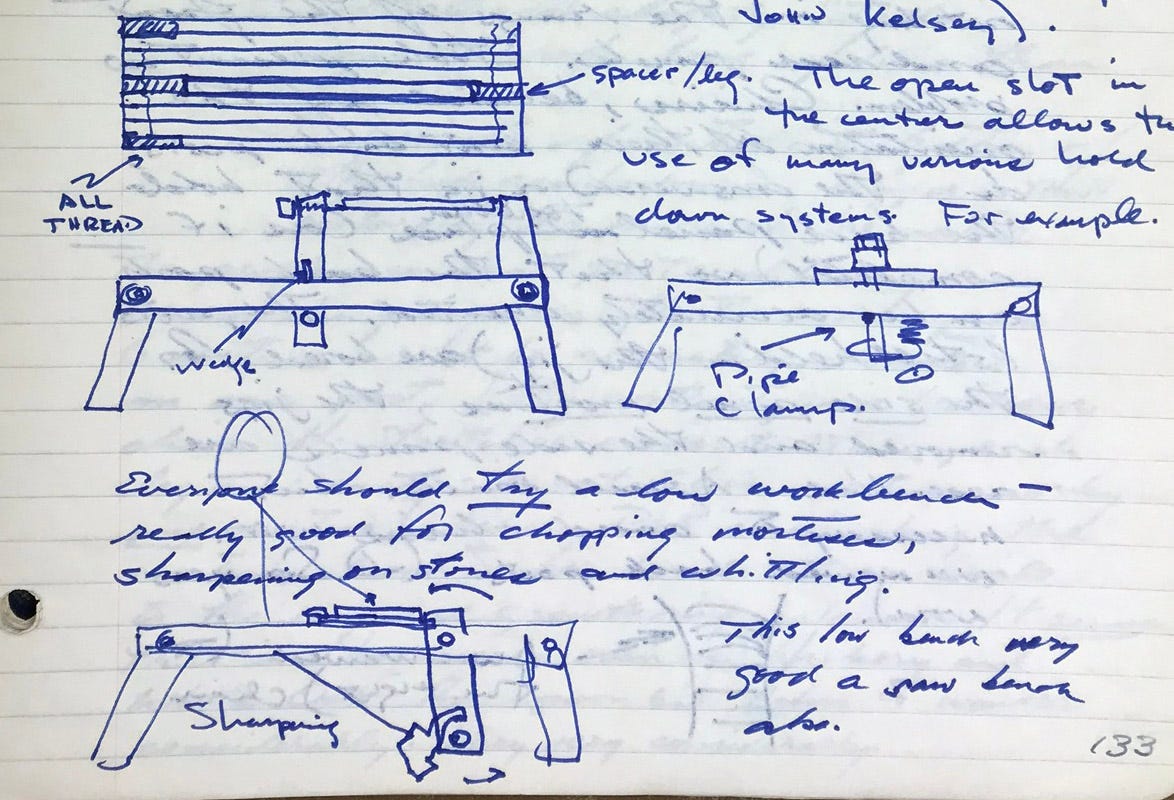 John Kelsey).
spacer/leg. The open slot in
the center allows the
use of many various hold
down systems. For example.
ALL
THREAD
wedge
Pipe
Clamp.
Everyone should try a low workbench –
really good for chopping mortises,
sharpening on stones and whittling.
This low bench very
good a saw bench
also.
Sharpening
133